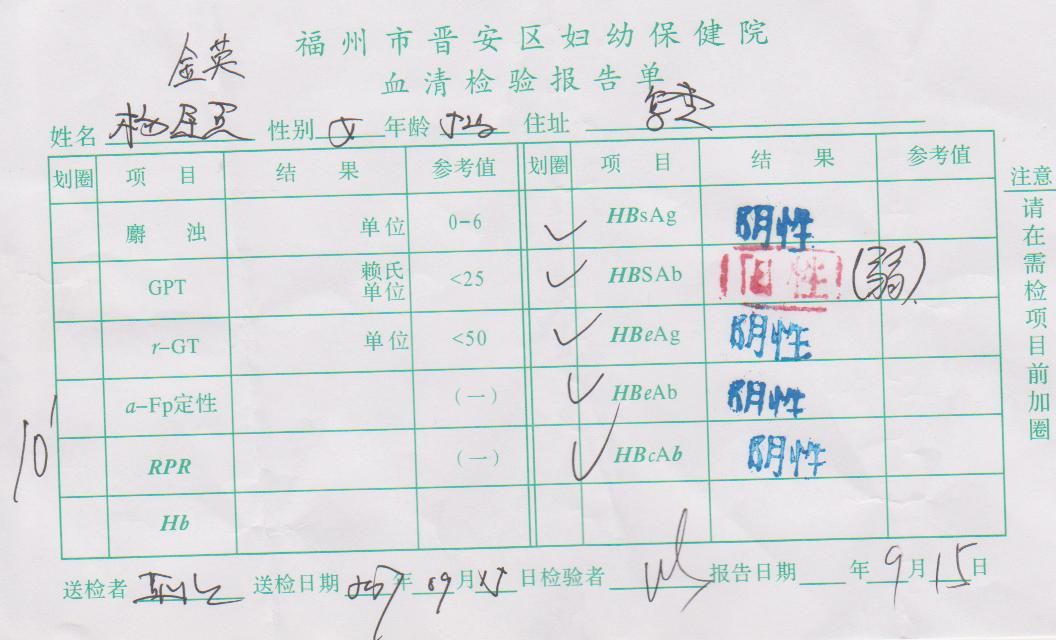 福州市晋安区妇幼保健院
金英
血清检验报告单
姓名 性别 女 年龄 住址
划圈 项目 结果 参考值 划圈 项目 结果 参考值
麝浊 单位 0-6 ✓ HBsAg 阴性
GPT 赖氏单位 <25 ✓ HBSAb 阳性 (弱)
r-GT 单位 <50 ✓ HBeAg 阴性
a-Fp定性 (一) ✓ HBeAb 阴性
RPR (一) ✓ HBcAb 阴性
Hb
注意
请在需检项目前加圈
送检者 送检日期 年 09月 日检验者 报告日期 年 9月15日